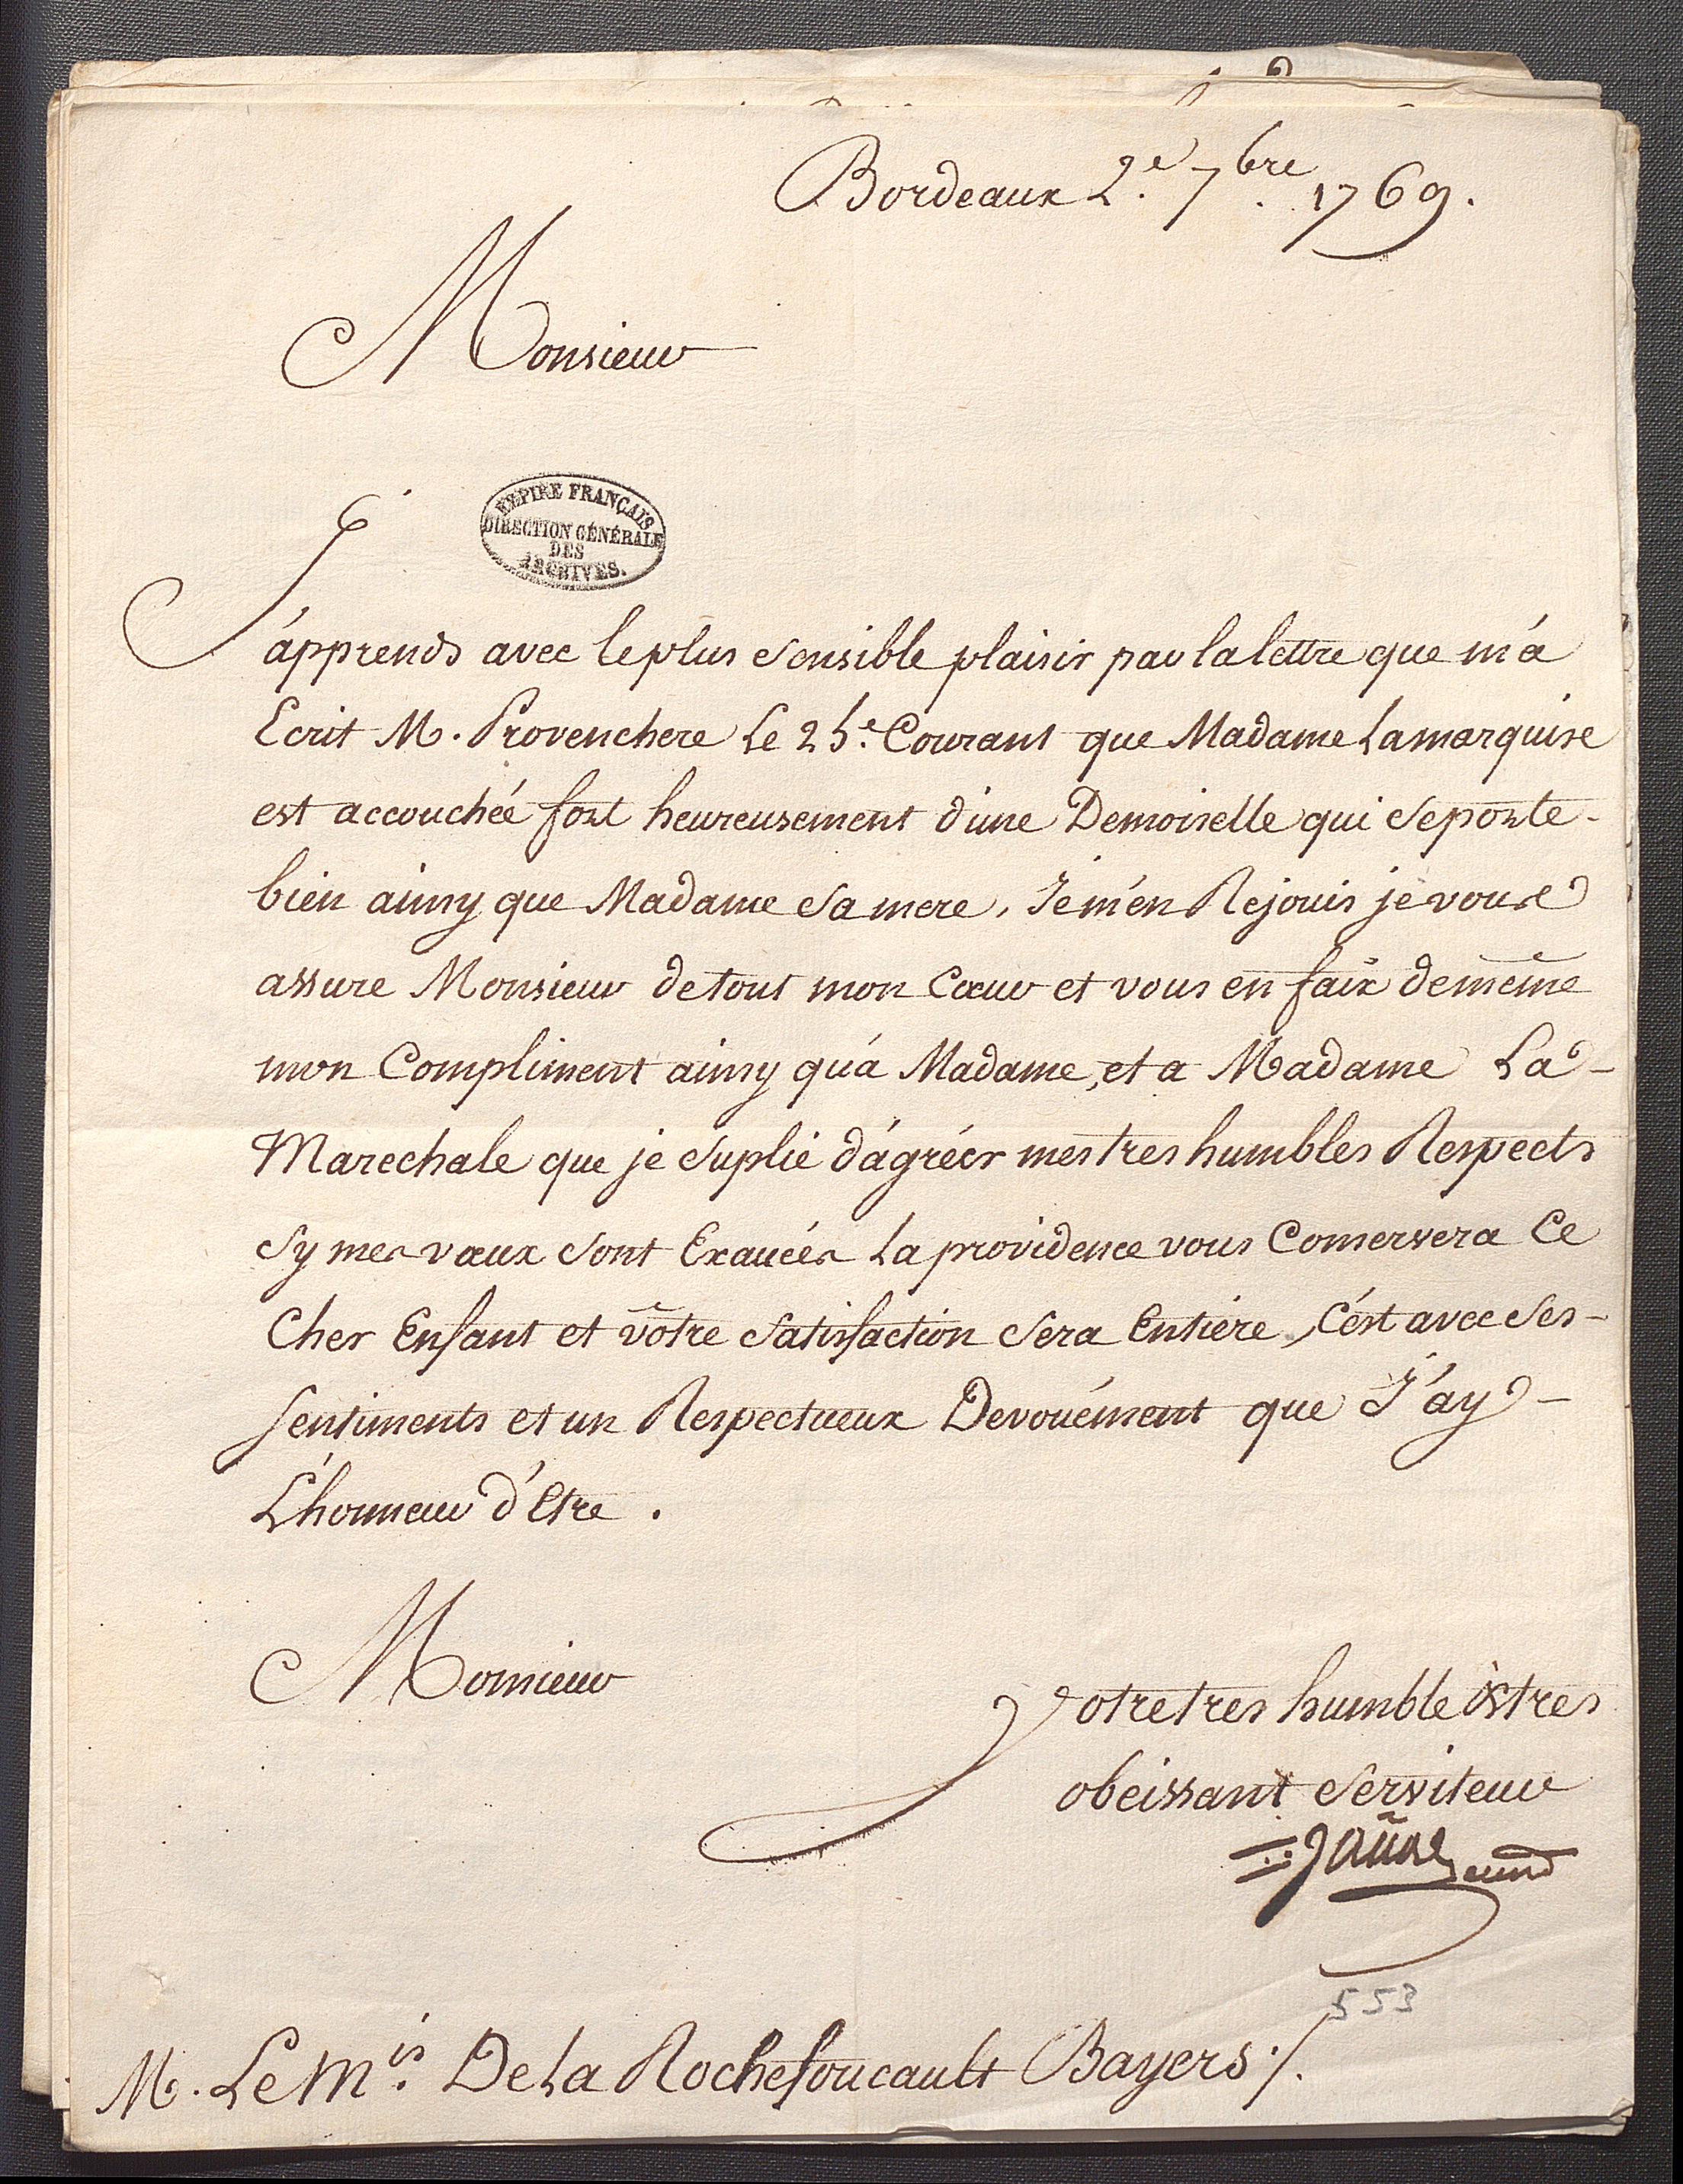 Bordeaux 2.e 7.bre 1769.
Monsieur
EMPIRE FRANÇAIS
DIRECTION GÉNÉRALE
DES
ARCHIVES.
J'apprends avec le plus sensible plaisir par la lettre que m'a
Ecrit M. Provenchere Le 25.e Courant que Madame Lamarquise
est accouchée fort heureusement d'une Demoiselle qui se porte
bien ainsy que Madame sa mere, Je m'en Rejouis je vous
assure Monsieur de tout mon Cœur et vous en faix de même
mon Compliment ainsy qu'à Madame, et a Madame La
Marechale que je suplie d'agréer mes tres humbles Respects
sy mes vœux sont Exaucés La providence vous Conservera Ce
Cher Enfant et vôtre satisfaction sera Entiere, C'ést avec ses
sentiments et un Respectueux Devouément que J'ay
L'honneur d'Etre.
Monsieur
Votre tres humble & tres
obeissant serviteur
553
M. Le M.is De La Rochefoucault Bayers ./.